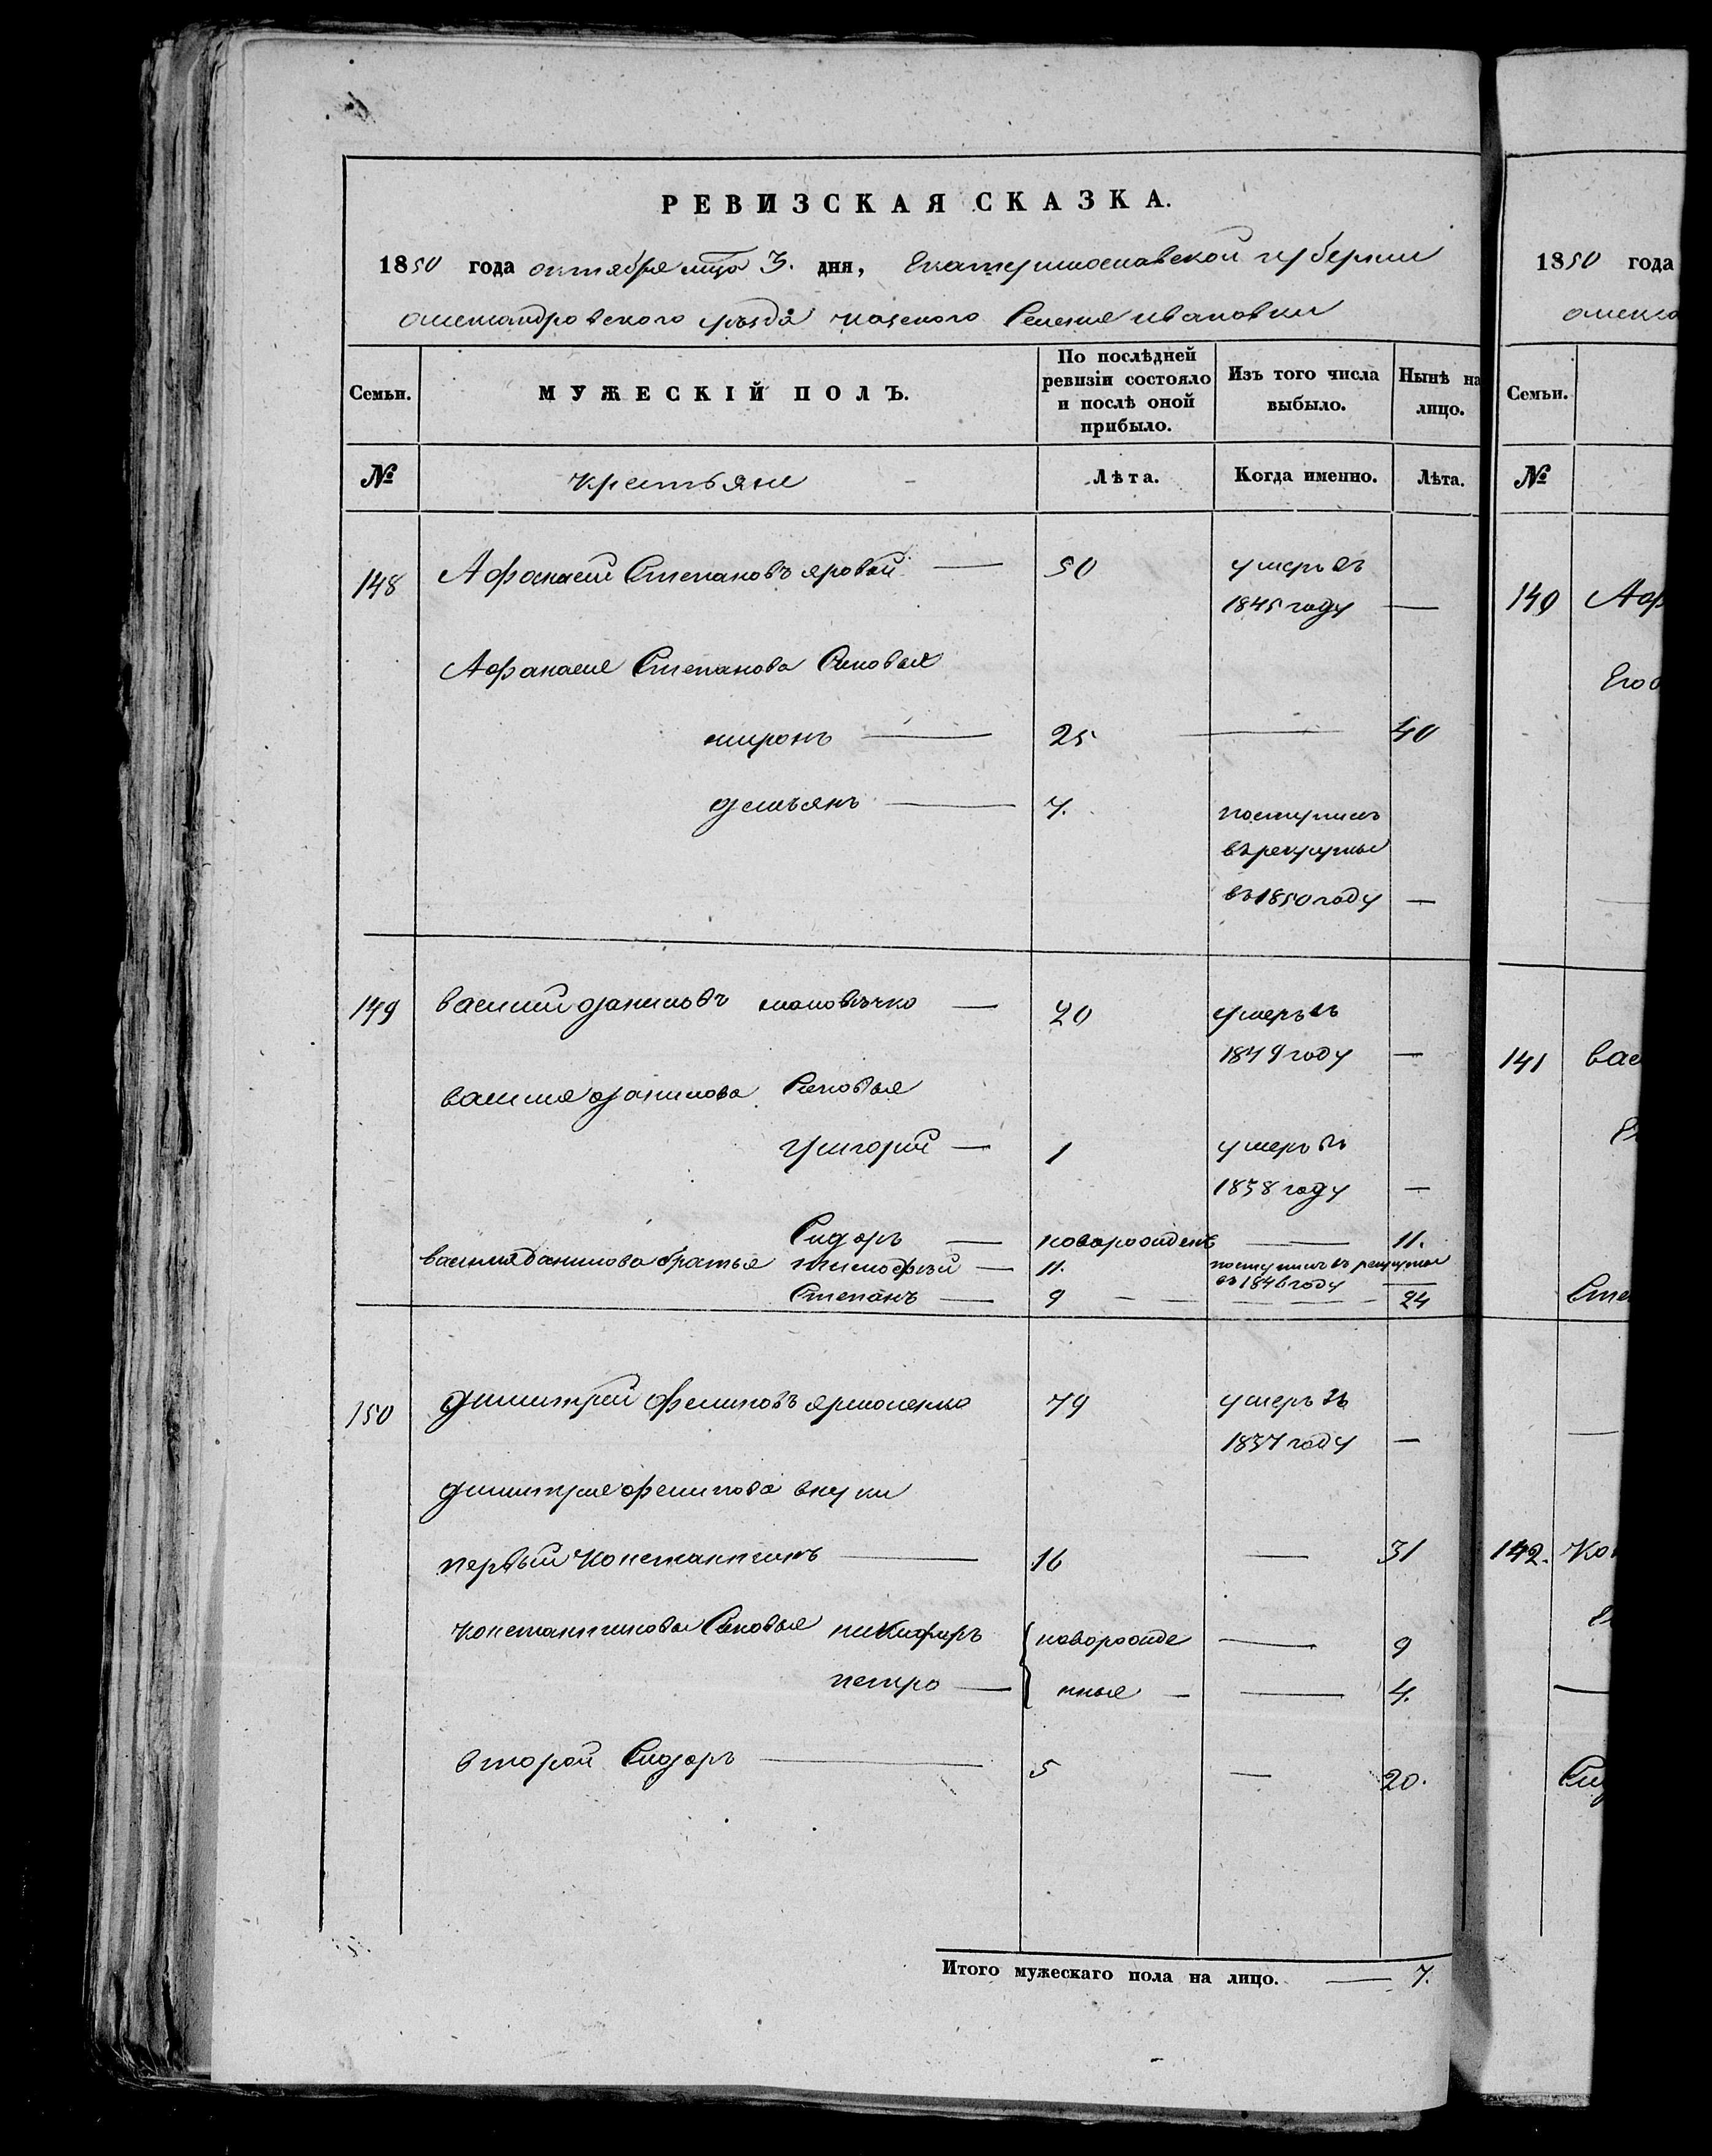 РЕВИЗСКАЯ СКАЗКА.
1850 года октября мца 3. дня, Екатеринославской губернии
александровского уѣзда казеного Селения ивановки
Семьи.
МУЖЕСКІЙ ПОЛЪ.
По послѣдней ревизіи состояло и послѣ оной прибыло.
Изъ того числа выбыло.
Нынѣ на лицо.
№
крестьяне
Лѣта.
Когда именно.
Лѣта.
148 Афанасий Степановъ яровой — 50 умеръ въ
1845 году —
Афанасия Степанова Сыновья
миронъ — 25 — 40
демьянъ — 7. поступилъ
в рекруты
въ 1850 году —
149 василий даниловъ — 20 умеръ въ
1849 году —
василия данилова Сыновья
григорий — 1 умеръ въ
1838 году —
Сидоръ — новорожденъ — 11.
василия данилова братья тимофѣй — 11. поступилъ въ рекруты
въ 1846 году —
Степанъ — 9 — — — — — 24
150 димитрий филиповъ ярмоленко 79 умеръ въ
1837 году —
димитрия филипова внуки
первый константинъ — 16 — 31
константиновы Сыновья никифоръ { новорожде — 9
петро — { нные — — 4.
второй Сидоръ — 5 — 20.
Итого мужескаго пола на лицо. — 7.
1850 года
Семьи.
№
140 Аф
Его
141 вас
Сте
142. Ко
Сид